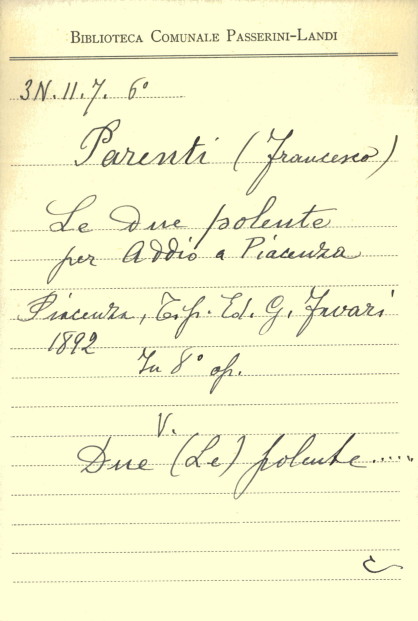 BIBLIOTECA COMUNALE PASSERINI-LANDI
3N. 11. 7. 6°
Parenti (Francesco)
Le Due polente
per Addio a Piacenza
Piacenza, Tip. Ed. G. Favari
1892
In 8° op.
V.
Due (Le) polente.....